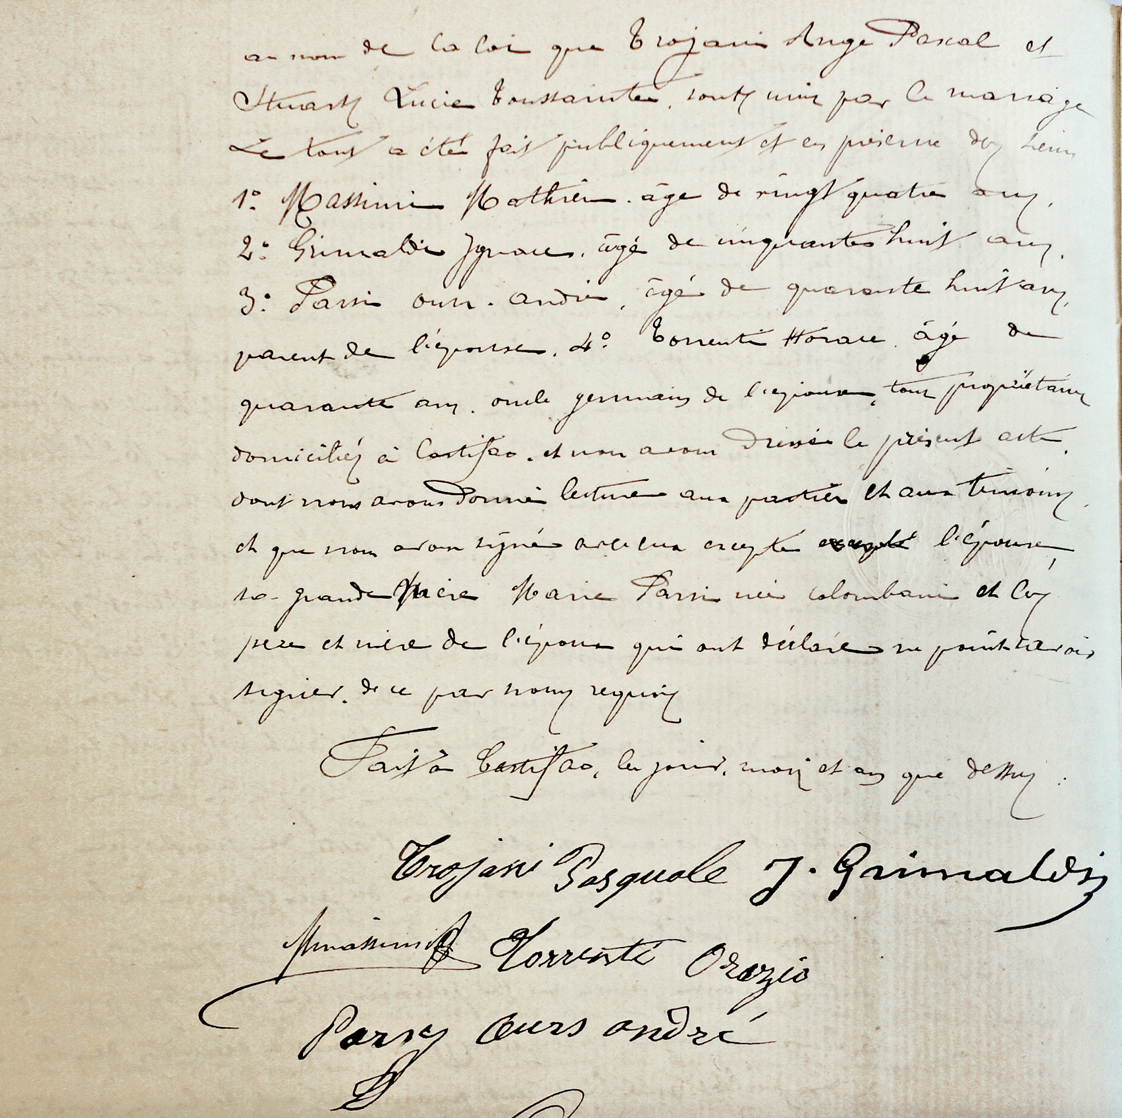 au nom de la loi que Trojani Ange Pascal et
Lucie Toussainte, sont unis par le mariage
Le tout a été fait publiquement et en présence des
1° Massimi Mathieu. âgé de vingt quatre ans,
2° Grimaldi Ignace, âgé de cinquante huit ans,
3° Parsi Ours. André, âgé de quarante huit ans,
parent de l'épouse, 4° Torrenti Horace, âgé de
quarante ans, oncle germain de l'épouse, tous propriétaires
domiciliés à Castifao. et nous avons dressé le présent acte,
dont nous avons donné lecture aux parties et aux témoins,
et que nous avons signé avec eux excepté l'épouse,
sa grande Mère Marie Parsi née Colombani et les
père et mère de l'époux qui ont déclaré ne point savoir
signer. de ce par nous requis
Fait à Castifao, les jour, mois et an que dessus.
Trojani Pasquale J. Grimaldi
Massimi Torrenti Orazio
Parsy Ours André